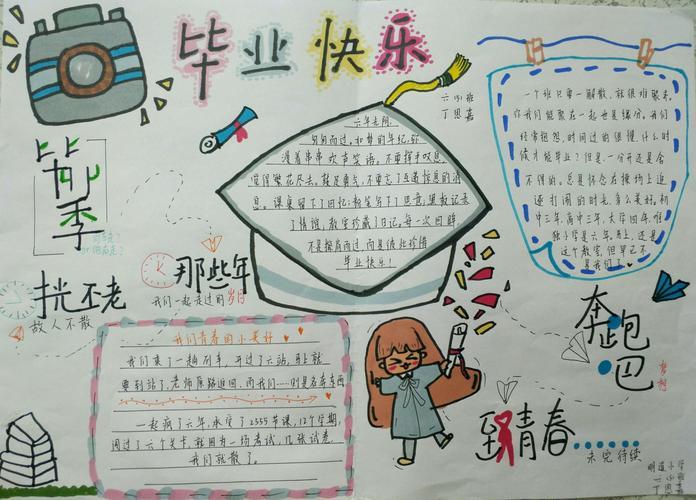 毕业快乐
六(4)班
丁思嘉
毕业季
六年光阴
匆匆而过，如梦的年纪，弥
漫着串串欢声笑语，不要挥手叹息，
觉得繁花尽去，鼓足勇气，不要忘了互通信息的消
息。课桌留下了回忆；教室写下了思意；黑板记录
了情谊，教室珍藏了日记。每一次回眸，
不是擦肩而过，而是彼此珍惜
毕业快乐！
一个班只要一解散，就很难聚齐。
你我们能聚在一起也是缘分。我们
经常抱怨，时间过的很慢，什么时
候才能毕业？但是一分开还是舍
不得的。总是怀念在操场上追
逐打闹的时光，多么美好。初
中三年，高中三年，大学四年，唯
独小学是六年。马上，还是
这个教室，但早已不
是我们了
那些年
我们一起走过的岁月
时光不老
故人不散
我们青春的小美好
我们乘了一趟列车，开过了六站，马上就
要到站了，老师原路返回，而我们……则是各奔东西
一起疯了六年，承受了2355节课，12个学期，
闯过了六个关卡，就因为一场考试，几张试卷，
我们就散了。
奔跑吧
梦想
致青春……
未完待续
明道小学
六(4)班
丁思嘉